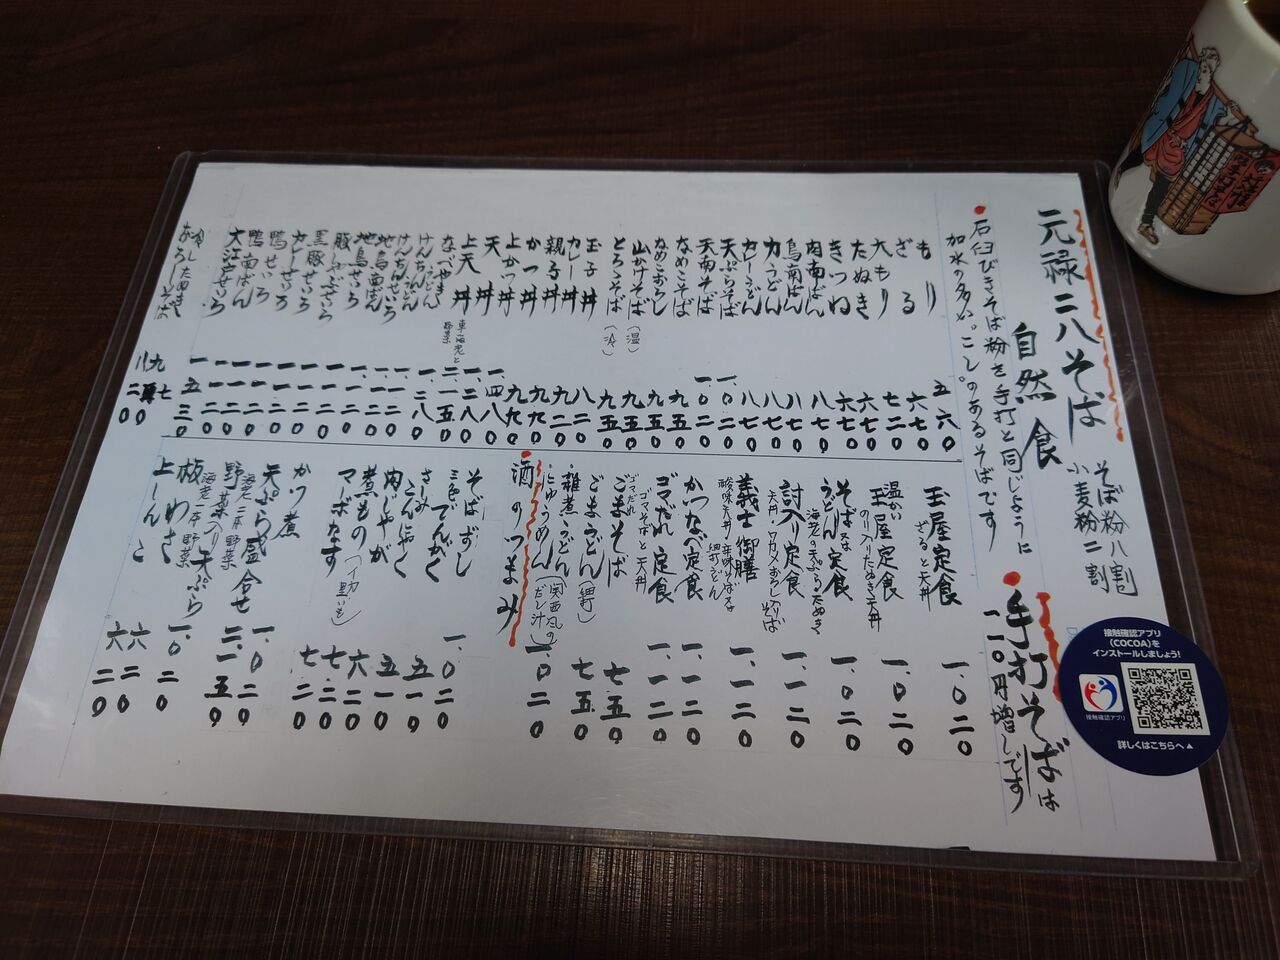 元禄二八そば
そば粉八割
小麦粉二割
自然食
石臼びきそば粉を手打と同じように
加水の多い。こし。のあるそばです
手打そばは
一二〇円増しです
もり 五六〇
ざる 六七〇
大もり 七二〇
たぬき 六七〇
きつね 六七〇
肉南ばん 八七〇
鳥南ばん 八七〇
力うどん 八七〇
カレーうどん 八七〇
天ぷらそば 一、〇二〇
天南そば 一、〇二〇
なめこそば 九五〇
なめこおろし 九五〇
山かけそば(温) 九五〇
とろろそば(冷) 九五〇
玉子丼 八二〇
カレー丼 九二〇
親子丼 九二〇
かつ丼 九九〇
上かつ丼
天丼
上天丼
なべやき 車海老と野菜
けんちんうどん
地鳥南ばん
地鳥せいろ
豚しゃぶせいろ
黒豚せいろ
カレーせいろ
鴨せいろ
鴨南ばん
大江戸せいろ
玉屋定食 一、〇二〇
ざると天丼
温かい玉屋定食 一、〇二〇
のり入りたぬき天丼
そば又はうどん定食 一、〇二〇
海老の天ぷらたぬき
討入り定食 一、一二〇
天丼、ワカメおろし入りそば
義士御膳 一、一二〇
かつなべ定食 一、一二〇
ゴマだれ定食 一、一二〇
ゴマそばと天丼
ゴマだれ
ごまそば 七五〇
ごまうどん(細打) 七五〇
雑煮うどん
にゅうめん(関西風のだし汁) 一、〇二〇
酒のつまみ
そばずし 一、〇二〇
三色でんがく 五一〇
さしみこんにゃく 五一〇
肉じゃが 六二〇
煮もの(八助いも) 七二〇
マーボなす 七二〇
かつ煮 一、〇二〇
天ぷら盛合せ 二、一五〇
海老二本 野菜
野菜天ぷら 一、〇二〇
海老一本 野菜
板わさ 六二〇
上しんこ 六二〇
接触確認アプリ
(COCOA)を
インストールしましょう!
接触確認アプリ
詳しくはこちらへ▲